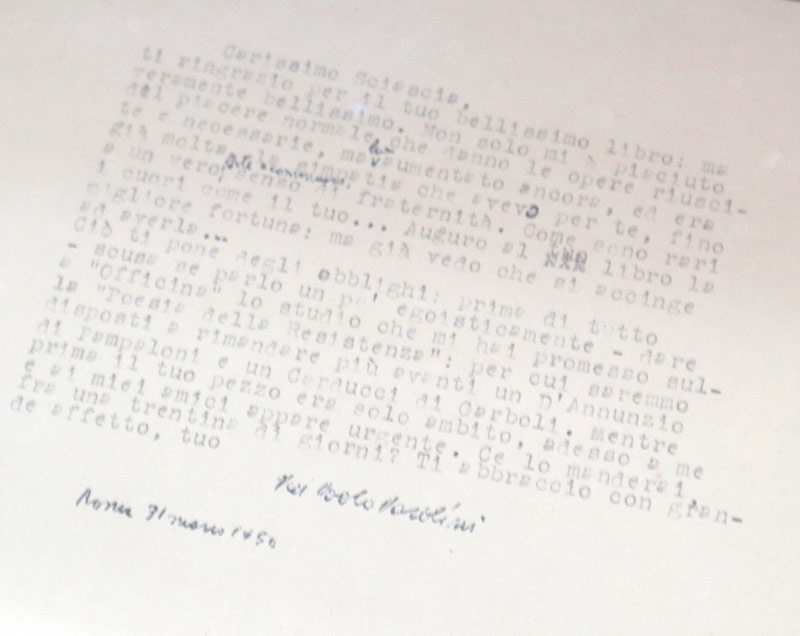 Carissimo Sciascia,
ti ringrazio per il tuo bellissimo libro: ma
veramente bellissimo. Non solo mi è piaciuto
del piacere normale che danno le opere riusci-
te e necessarie, ma ha aumentato ancora, ed era
già molta, la simpatia che avevo per te, fino
a un vero, senso di fraternità. Come sono rari
i cuori come il tuo... Auguro al libro la
migliore fortuna: ma già vedo che si accinge
ad averla...
Ciò ti pone degli obblighi: prima di tutto
- scusa se parlo un po' egoisticamente - dare
a "Officina" lo studio che mi hai promesso sul-
la "Poesia della Resistenza": per cui saremmo
disposti a rimandare più avanti un D'Annunzio
di Pampaloni e un Carducci di Garboli. Mentre
prima il tuo pezzo era solo ambito, adesso a me
e ai miei amici appare urgente. Ce lo manderai,
fra una trentina di giorni? Ti abbraccio con gran-
de affetto, tuo
Pier Paolo Pasolini
Roma 31 marzo 1956